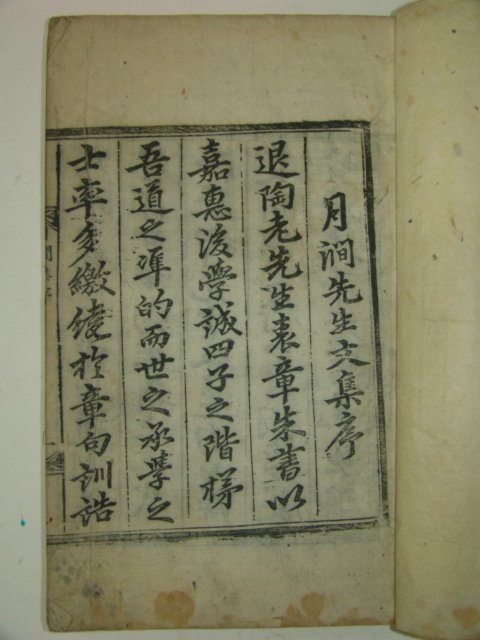 月澗先生文集序
退陶老先生表章朱書以
嘉惠後學誠四子之階梯
吾道之準的而世之承學之
士率多繳繞於章句訓詁